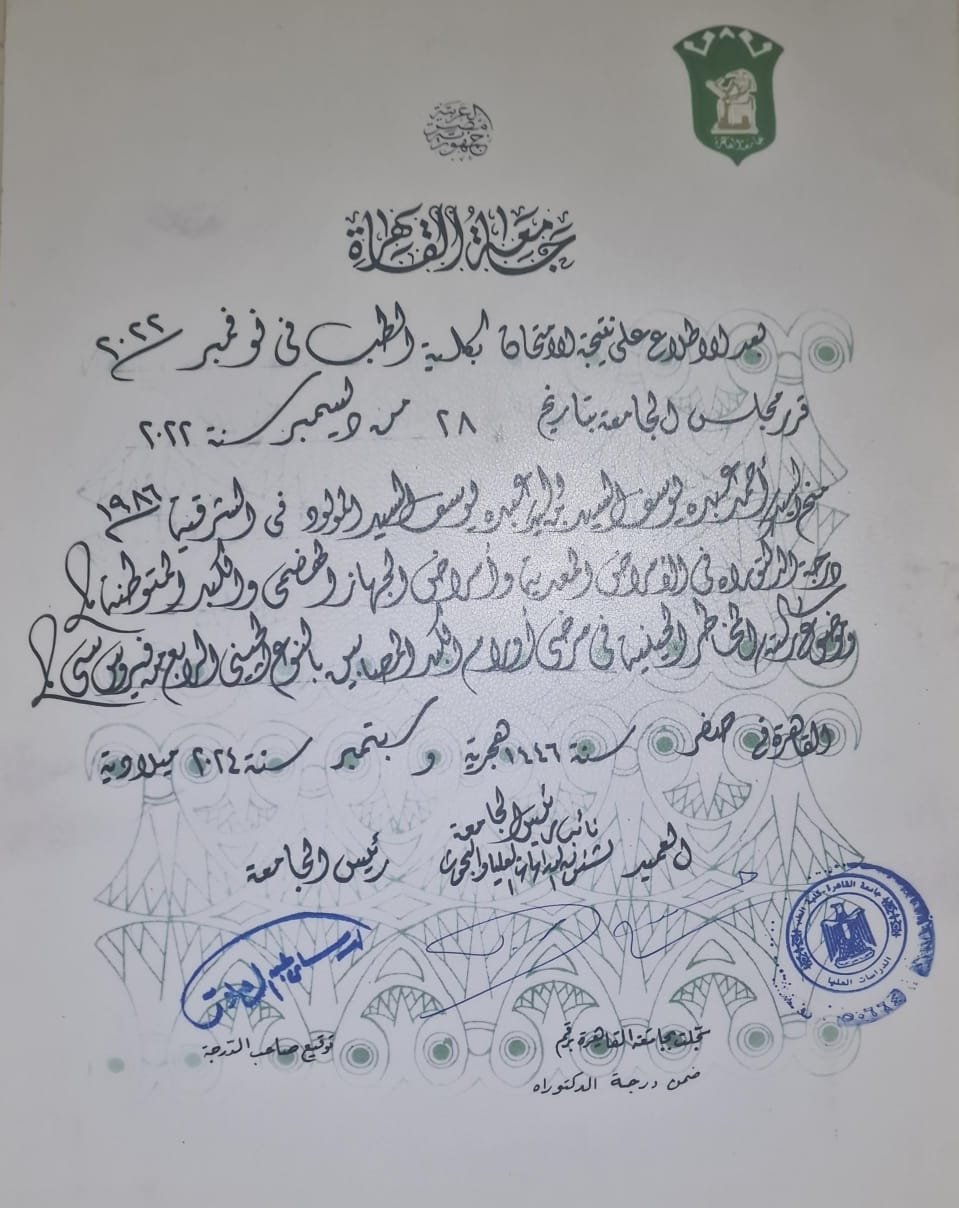 جامعة القاهرة
جمهورية مصر العربية
جامعة القاهرة
بعد الاطلاع على نتيجة الامتحان بكلية الطب فى نوفمبر ٢٠٢٢
قرر مجلس الجامعة بتاريخ ٢٨ من ديسمبر سنة ٢٠٢٢
منح السيد/ أحمد عبده يوسف السيد عبده يوسف السيد المولود فى الشرقية ١٩٨٦
درجة الدكتوراه فى الأمراض المعدية وأمراض الجهاز الهضمى والكبد المتوطنة
وموضوع رسالته المخاطر الجينية فى مرضى أورام الكبد المصابين بالنوع الجينى الرابع من فيروس سى
القاهرة فى صفر سنة ١٤٤٦ هجرية و سبتمبر سنة ٢٠٢٤ ميلادية
العميد
نائب رئيس الجامعة
لشئون الدراسات العليا والبحوث
رئيس الجامعة
جامعة القاهرة - كلية الطب
الدراسات العليا
سجلت بجامعة القاهرة برقم
توقيع صاحب الدرجة
ضمن درجة الدكتوراه